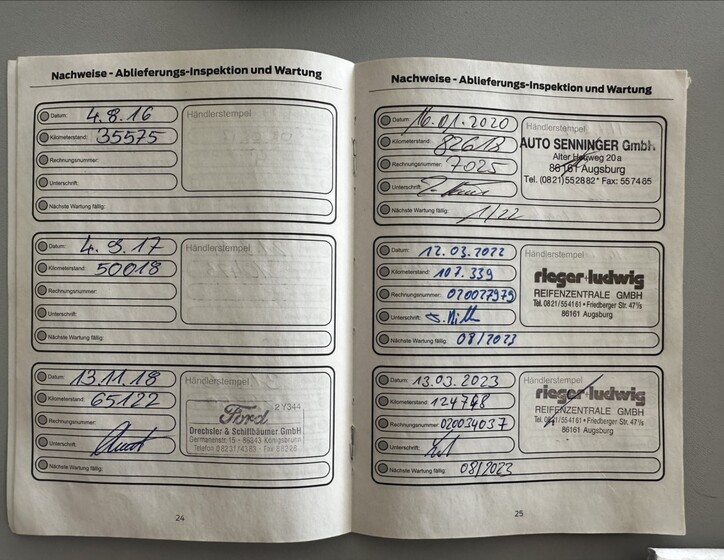 Nachweise - Ablieferungs-Inspektion und Wartung
Datum: 4.8.16
Händlerstempel
Kilometerstand: 35575
Rechnungsnummer:
Unterschrift:
Nächste Wartung fällig:
Datum: 4.9.17
Händlerstempel
Kilometerstand: 50018
Rechnungsnummer:
Unterschrift:
Nächste Wartung fällig:
Datum: 13.11.18
Händlerstempel
Kilometerstand: 65122
2Y344
Ford
Rechnungsnummer:
Drechsler & Schiftbäumer GmbH
Unterschrift:
Germanenstr. 15 - 86343 Königsbrunn
Telefon 08231/
Nächste Wartung fällig:
24
Nachweise - Ablieferungs-Inspektion und Wartung
Datum: 16.01.2020
Händlerstempel
Kilometerstand: 82618
AUTO SENNINGER GmbH
Rechnungsnummer: 7025
Alter Heuweg 20a
86161 Augsburg
Unterschrift:
Tel. (0821) 552882 * Fax: 557485
Nächste Wartung fällig: 1/22
Datum: 12.03.2022
Händlerstempel
Kilometerstand: 107.339
rieger+ludwig
Rechnungsnummer: 020027979
REIFENZENTRALE GMBH
Tel. 0821/554161 • Friedberger Str. 47½
Unterschrift:
86161 Augsburg
Nächste Wartung fällig: 08/2023
Datum: 13.03.2023
Händlerstempel
Kilometerstand: 124748
rieger+ludwig
Rechnungsnummer: 020034037
REIFENZENTRALE GMBH
Tel. 0821/554161 • Friedberger Str. 47½
Unterschrift:
86161 Augsburg
Nächste Wartung fällig: 08/2023
25